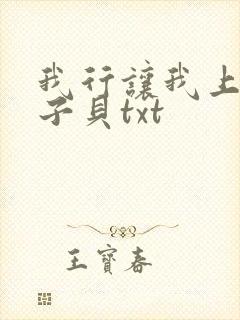 我行讓我上
子貝txt
王寶春